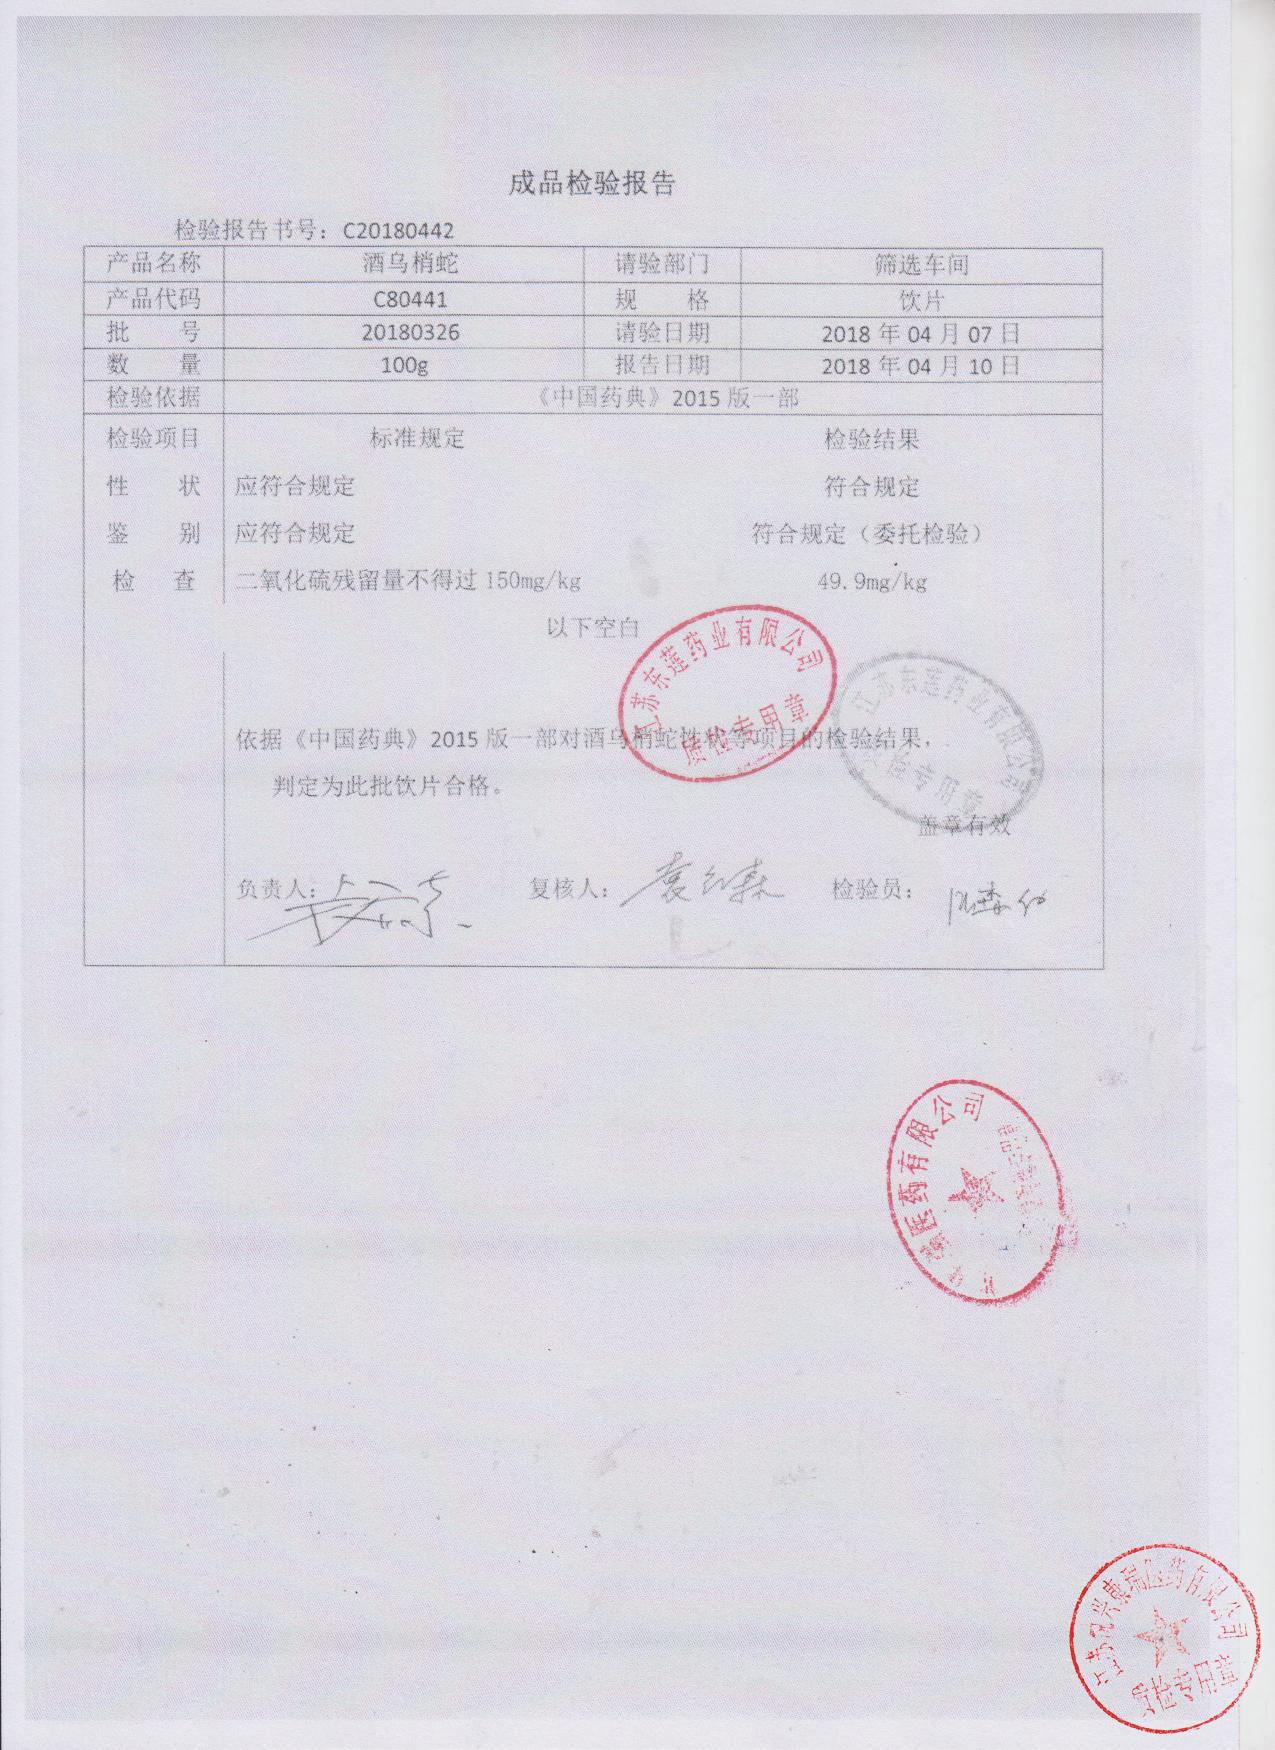 成品检验报告
检验报告书号：C20180442
产品名称 酒乌梢蛇 请验部门 筛选车间
产品代码 C80441 规 格 饮片
批 号 20180326 请验日期 2018年04月07日
数 量 100g 报告日期 2018年04月10日
检验依据 《中国药典》2015版一部
检验项目 标准规定 检验结果
性 状 应符合规定 符合规定
鉴 别 应符合规定 符合规定（委托检验）
检 查 二氧化硫残留量不得过150mg/kg 49.9mg/kg
以下空白
江苏东莲药业有限公司
质检专用章
江苏东莲药业有限公司
质检专用章
依据《中国药典》2015版一部对酒乌梢蛇性状等项目的检验结果，
判定为此批饮片合格。
盖章有效
负责人： 复核人： 检验员：
医药有限公司
康瑞医药有限公司
质检专用章